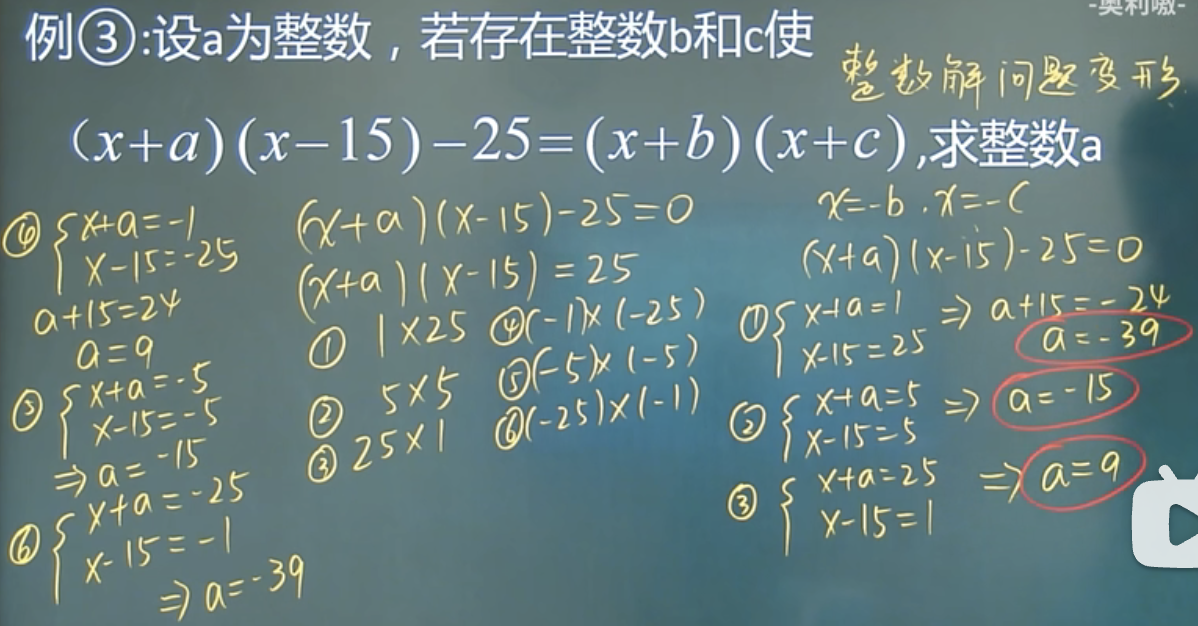 -奥利嗷-
例③:设a为整数，若存在整数b和c使
整数解问题变形
(x+a)(x-15)-25=(x+b)(x+c),求整数a
④{x+a=-1
x-15=-25
a+15=24
a=9
⑤{x+a=-5
x-15=-5
⇒a=-15
⑥{x+a=-25
x-15=-1
⇒a=-39
(x+a)(x-15)-25=0
(x+a)(x-15)=25
① 1×25 ④(-1)×(-25)
② 5×5 ⑤(-5)×(-5)
③ 25×1 ⑥(-25)×(-1)
x=-b.x=-c
(x+a)(x-15)-25=0
①{x+a=1 ⇒ a+15=-24
x-15=25 a=-39
②{x+a=5 ⇒ a=-15
x-15=5
③{x+a=25 ⇒ a=9
x-15=1